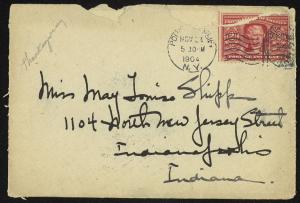 Thanksgiving
NOV 23
5 30 PM
1904
N.Y.
Miss May Louise Shipp
1104 North New Jersey Street
Indianapolis
Indiana.